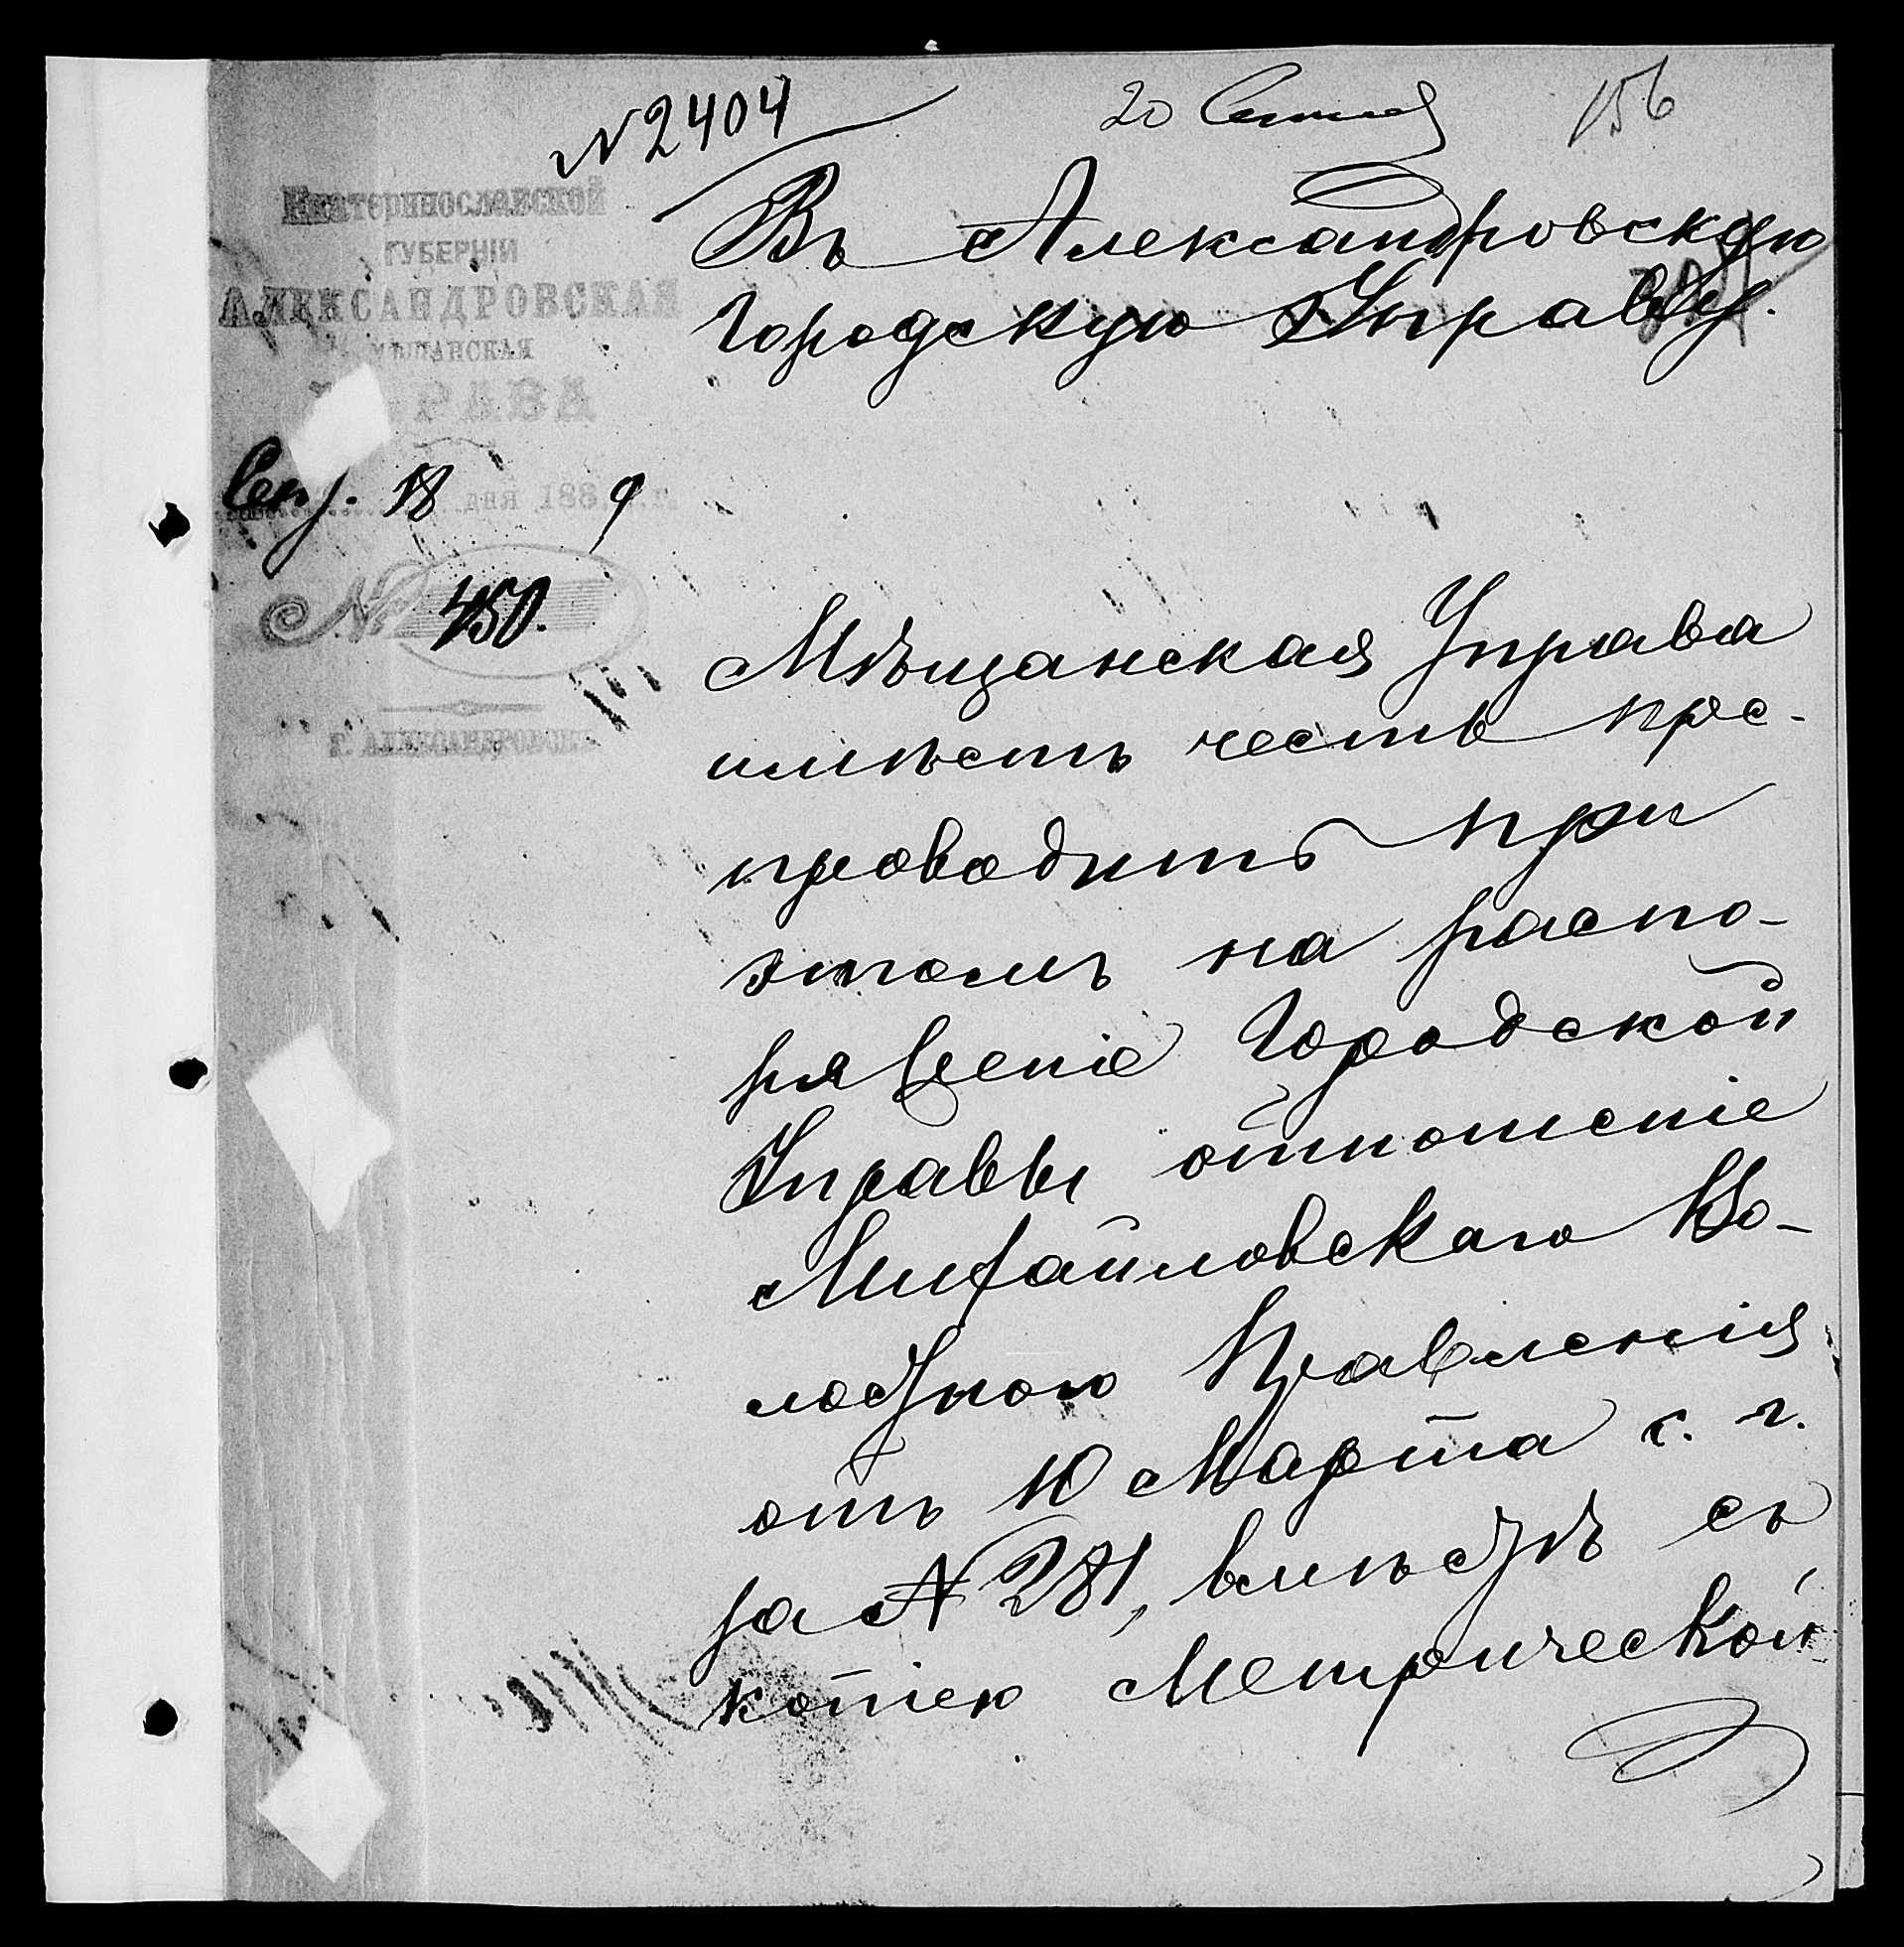 № 2404
20 Сентяб
156
Екатеринославской
ГУБЕРНІИ
АЛЕКСАНДРОВСКАЯ
МѢЩАНСКАЯ
УПРАВА
Сент. 18 дня 1889 г.
№ 450.
Г. АЛЕКСАНДРОВСКЪ
Въ Александровскую
Городскую Управу.
Мѣщанская Управа
имѣетъ честь пре-
проводить при
этомъ на распо-
ряженіе Городской
Управы отношеніе
Михайловскаго Во-
лостного Правленія
отъ 10 Марта с. г.
за № 281, вмѣстѣ съ
копіею Метрической